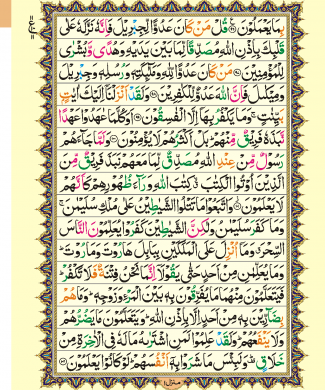 بِمَا يَعْمَلُوْنَ ۝ قُلْ مَنْ كَانَ عَدُوًّا لِّجِبْرِيْلَ فَاِنَّهٗ نَزَّلَهٗ عَلٰى
قَلْبِكَ بِاِذْنِ اللّٰهِ مُصَدِّقًا لِّمَا بَيْنَ يَدَيْهِ وَهُدًى وَّبُشْرٰى
لِلْمُؤْمِنِيْنَ ۝ مَنْ كَانَ عَدُوًّا لِّلّٰهِ وَمَلٰٓئِكَتِهٖ وَرُسُلِهٖ وَجِبْرِيْلَ
وَمِيْكٰىلَ فَاِنَّ اللّٰهَ عَدُوٌّ لِّلْكٰفِرِيْنَ ۝ وَلَقَدْ اَنْزَلْنَآ اِلَيْكَ اٰيٰتٍۭ
بَيِّنٰتٍ ۚ وَمَا يَكْفُرُ بِهَآ اِلَّا الْفٰسِقُوْنَ ۝ اَوَكُلَّمَا عٰهَدُوْا عَهْدًا
نَّبَذَهٗ فَرِيْقٌ مِّنْهُمْ ۭ بَلْ اَكْثَرُهُمْ لَا يُؤْمِنُوْنَ ۝ وَلَمَّا جَآءَهُمْ
رَسُوْلٌ مِّنْ عِنْدِ اللّٰهِ مُصَدِّقٌ لِّمَا مَعَهُمْ نَبَذَ فَرِيْقٌ مِّنَ
الَّذِيْنَ اُوْتُوا الْكِتٰبَ ۙ كِتٰبَ اللّٰهِ وَرَآءَ ظُهُوْرِهِمْ كَاَنَّهُمْ
لَا يَعْلَمُوْنَ ۝ وَاتَّبَعُوْا مَا تَتْلُوا الشَّيٰطِيْنُ عَلٰى مُلْكِ سُلَيْمٰنَ ۚ
وَمَا كَفَرَ سُلَيْمٰنُ وَلٰكِنَّ الشَّيٰطِيْنَ كَفَرُوْا يُعَلِّمُوْنَ النَّاسَ
السِّحْرَ ۤ وَمَآ اُنْزِلَ عَلَى الْمَلَكَيْنِ بِبَابِلَ هَارُوْتَ وَمَارُوْتَ ۭ
وَمَا يُعَلِّمٰنِ مِنْ اَحَدٍ حَتّٰى يَقُوْلَآ اِنَّمَا نَحْنُ فِتْنَةٌ فَلَا تَكْفُرْ ۭ
فَيَتَعَلَّمُوْنَ مِنْهُمَا مَا يُفَرِّقُوْنَ بِهٖ بَيْنَ الْمَرْءِ وَزَوْجِهٖ ۭ وَمَا هُمْ
بِضَآرِّيْنَ بِهٖ مِنْ اَحَدٍ اِلَّا بِاِذْنِ اللّٰهِ ۭ وَيَتَعَلَّمُوْنَ مَا يَضُرُّهُمْ
وَلَا يَنْفَعُهُمْ ۭ وَلَقَدْ عَلِمُوْا لَمَنِ اشْتَرٰىهُ مَا لَهٗ فِى الْاٰخِرَةِ مِنْ
خَلَاقٍ ۭ وَلَبِئْسَ مَا شَرَوْا بِهٖٓ اَنْفُسَهُمْ ۭ لَوْ كَانُوْا يَعْلَمُوْنَ ۝
منزل ۱